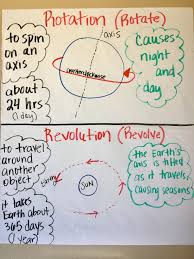 Rotation (Rotate)
to spin
on an
axis
about
24 hrs
(1 day)
axis
counterclockwise
Causes
night
and
day
Revolution (Revolve)
to travel
around
another
object
it takes
Earth about
365 days
(1 year)
Earth
SUN
the Earth's
axis is tilted
as it travels,
causing seasons